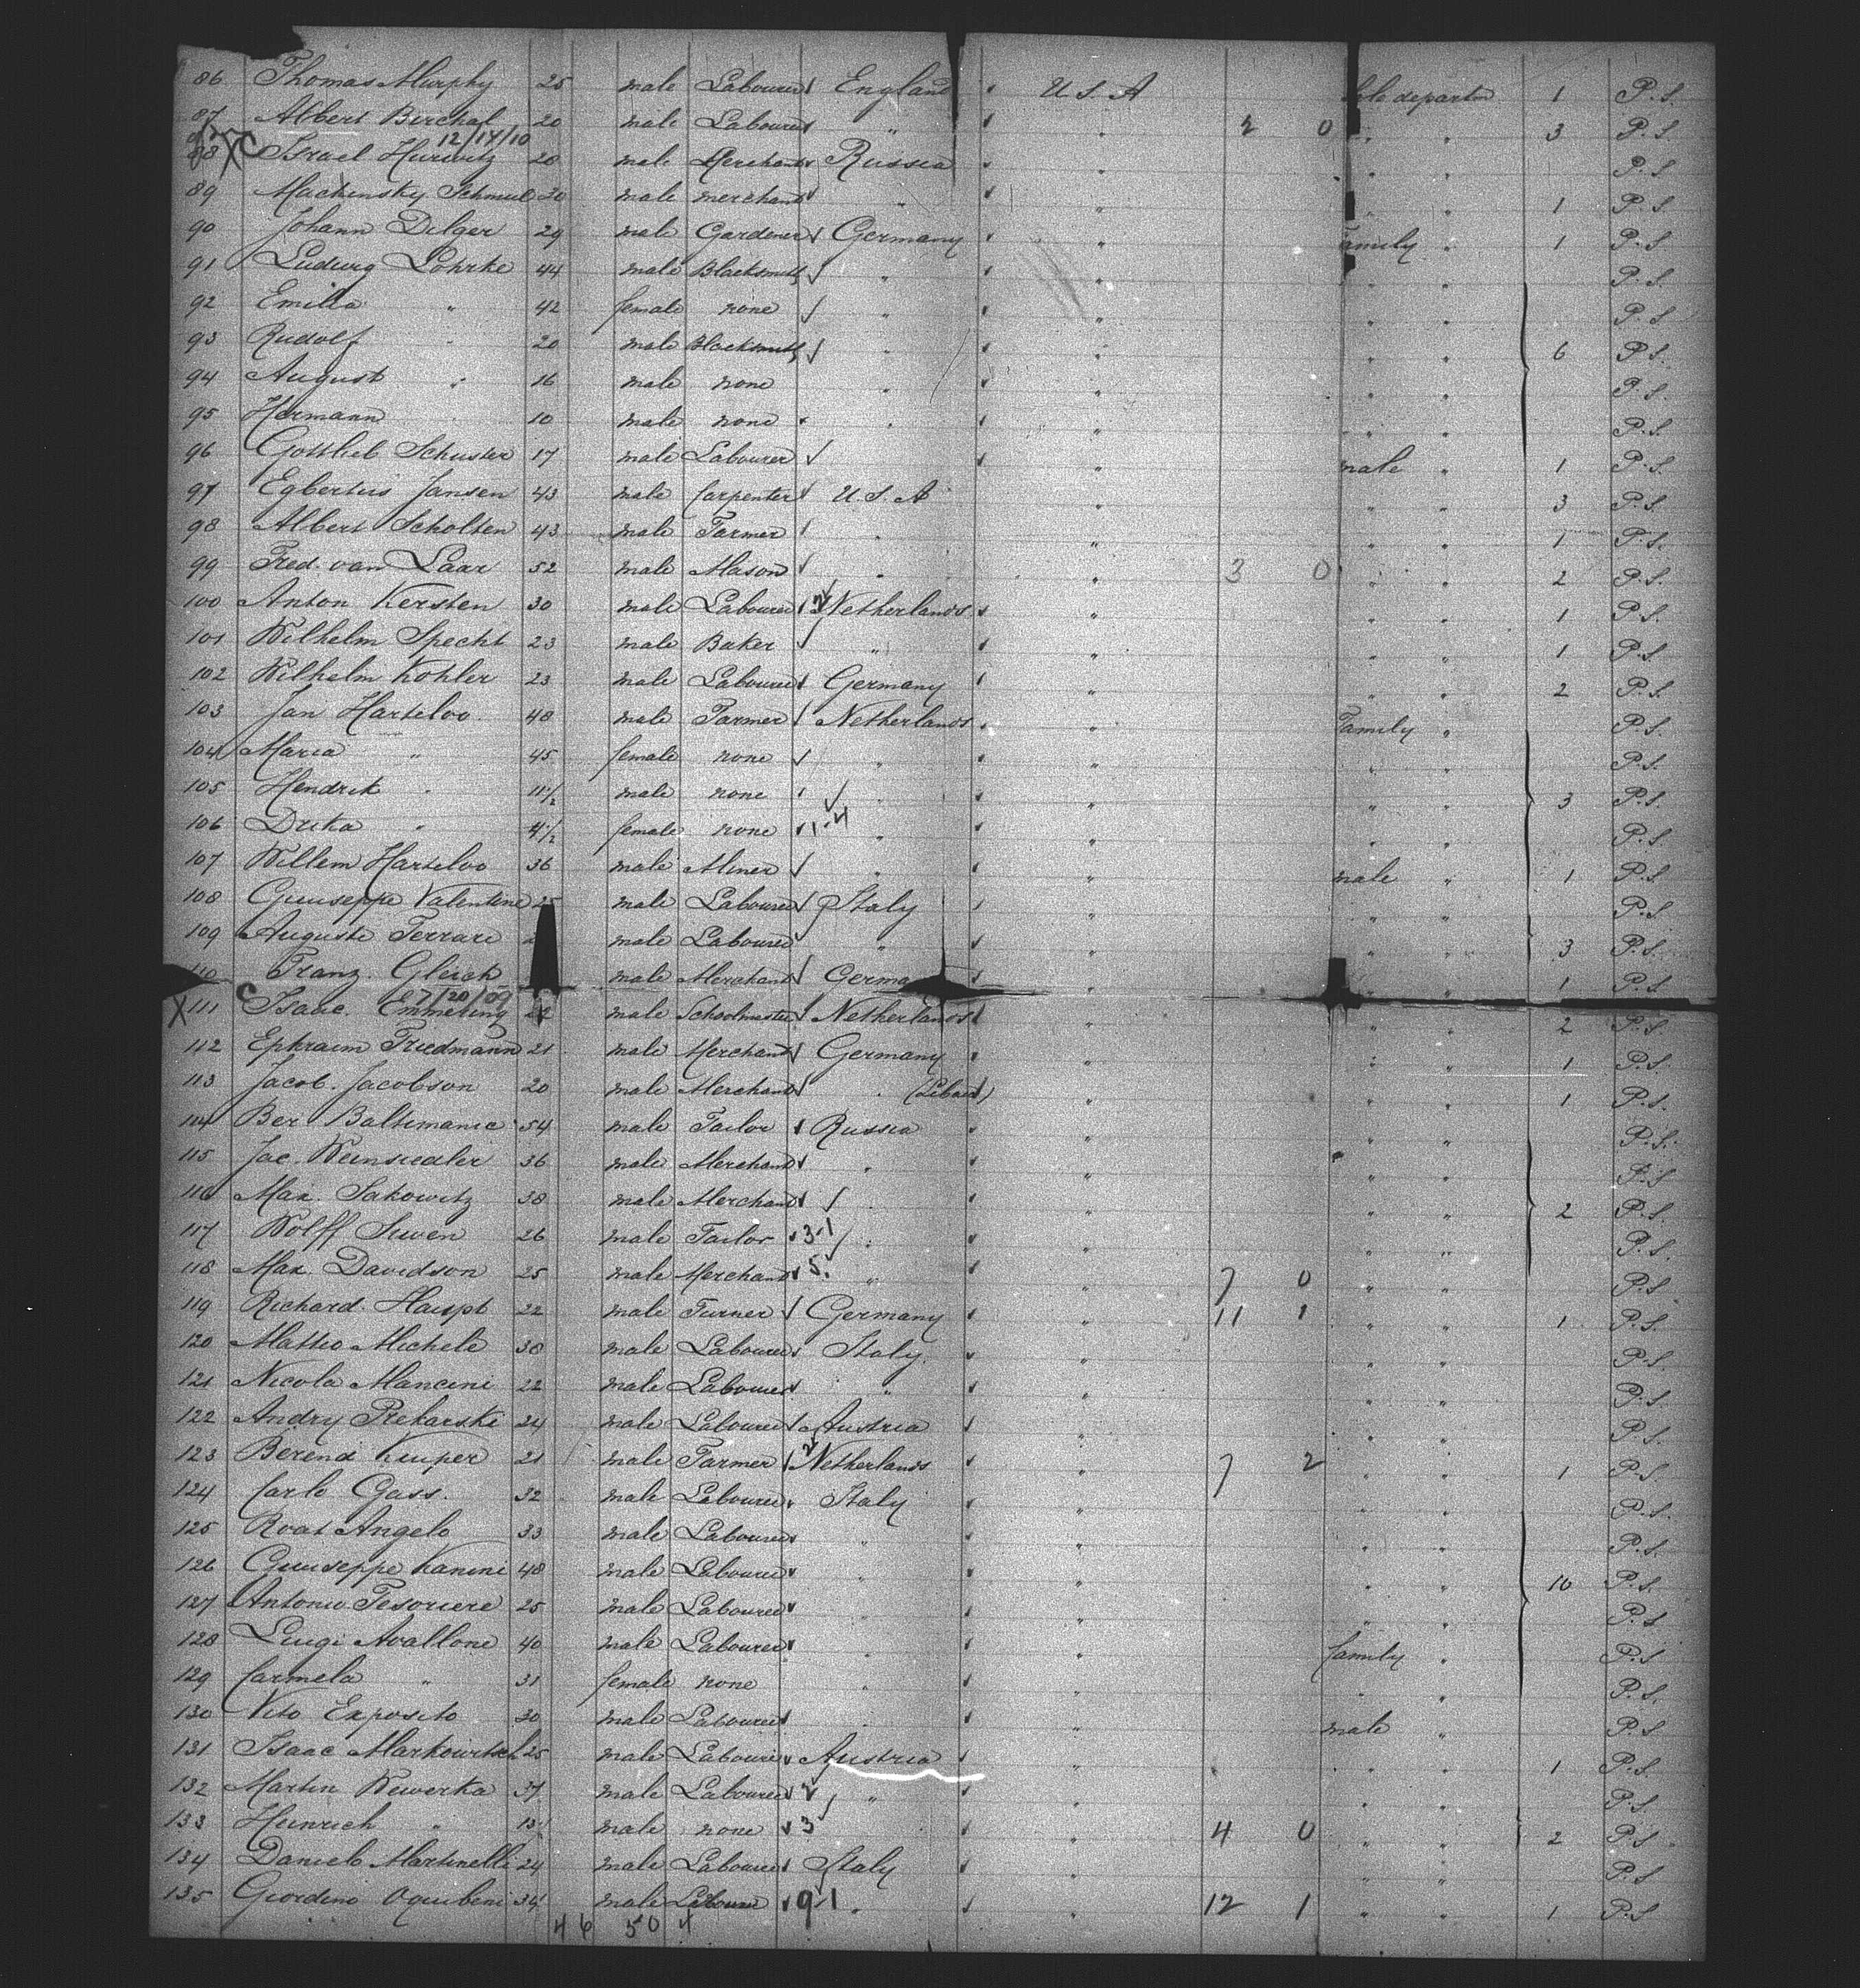 86 Thomas Murphy 25 male Labourer England U.S.A departm 1 P.S.
87 Albert Birchal 20 male Labourer " " 2 0 " " 3 P.S.
12/14/10
88 Israel Hurwitz 20 male Merchant Russia " " " P.S
89 Machinsky Schmul 30 male merchant " " " " 1 P.S.
90 Johann Dilger 29 male Gardener Germany " Family " 1 P.S
91 Ludwig Lohrke 44 male Blacksmith " " " " P.S.
92 Emilia " 42 female none " " " " P.S
93 Rudolf " 20 male Blacksmith " " " " 6 P.S.
94 August " 16 male none " " " " P.S.
95 Hermann " 10 male none " " " " P.S.
96 Gottlieb Schuster 17 male Labourer " male " 1 P.S.
97 Egbertus Jansen 43 male Carpenter U.S.A " " " 3 P.S.
98 Albert Scholten 43 male Farmer " " " " 1 P.S.
99 Fred. van Laar 52 male Mason " " 3 0 " " 2 P.S.
100 Anton Kersten 30 male Labourer 2 Netherlands " " " 1 P.S.
101 Wilhelm Specht 23 male Baker " " " " 1 P.S.
102 Wilhelm Kohler 23 male Labourer Germany " " " 2 P.S.
103 Jan Harteloo 48 male Farmer Netherlands " Family " P.S.
104 Maria " 45 female none " " " " P.S.
105 Hendrik " 11 1/2 male none " " " " 3 P.S.
106 Drika " 4 1/2 female none 1-4 " " " " P.S.
107 Willem Harteloo 36 male Miner " " male " 1 P.S.
108 Guiuseppe Valentine 25 male Labourer Italy " " " P.S.
109 Auguste Ferrare male Labourer " " " " 3 P.S.
110 Franz. Gleich male Merchant Germa " " " 1 P.S
C 7/20/09
X 111 Isaac. Emmering 22 male Schoolmaster Netherlands " " " 2 P.S.
112 Ephraim Friedmann 21 male Merchant Germany " " " 1 P.S.
113 Jacob. Jacobson 20 male Merchant " (Libau) " " " 1 P.S.
114 Ber Baltimanic 54 male Tailor Russia " " " P.S.
115 Jac. Weinsiedler 36 male Merchant " " " " P.S
116 Max. Sakowitz 38 male Merchant " " " " 2 P.S.
117 Wolff Suven 26 male Tailor 3-1 " " " " P.S.
118 Max. Davidson 25 male Merchant 5. " " 7 0 " " P.S.
119 Richard. Haupt 22 male Turner Germany " 11 1 " " 1 P.S.
120 Matteo Michele 38 male Labourer Italy " " " P.S.
121 Nicola Mancini 22 male Labourer " " " " P.S.
122 Andry Prekarski 24 male Labourer Austria " " " P.S.
123 Berend Kuiper 21 male Farmer 2 Netherlands " 7 2 " " 1 P.S.
124 Carlo Gass. 32 male Labourer Italy " " " P.S.
125 Roat Angelo 33 male Labourer " " " " P.S.
126 Guiuseppe Kanini 48 male Labourer " " " " 10 P.S.
127 Antonio Tesoriere 25 male Labourer " " " " P.S
128 Luigi Avallone 40 male Labourer " " family " P.S
129 Carmela " 31 female none " " " " P.S.
130 Vito Exposito 30 male Labourer " " male " P.S
131 Isaac Markowitsch 25 male Labourer Austria " " " 1 P.S.
132 Martin Wewerka 37 male Labourer 2 " " " " P.S
133 Heinrich " 13 male none 3 " " 4 0 " " 2 P.S
134 Daniele Martinelli 24 male Labourer Italy " " " P.S
135 Giordino 34 male Labourer 9-1 " " 12 1 " " 1 P.S
46 50 4